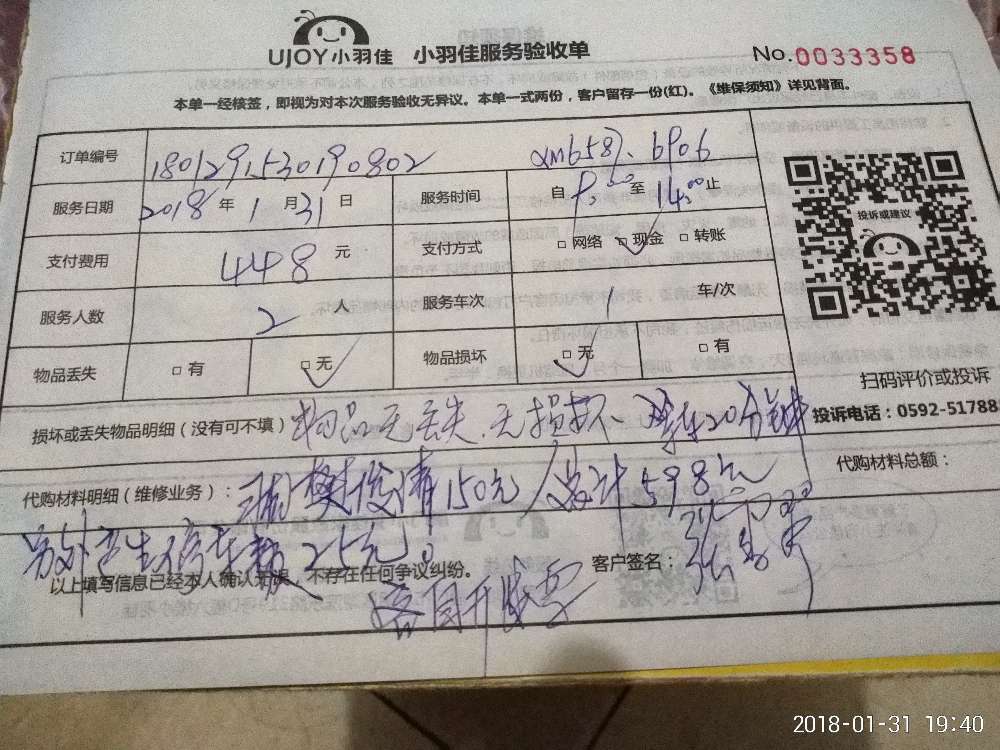 UJOY小羽佳 小羽佳服务验收单 No.0033358
本单一经核签，即视为对本次服务验收无异议。本单一式两份，客户留存一份(红)。《维保须知》详见背面。
订单编号 1801291530190802
服务日期 2018年1月31日 服务时间 自 8:30 至 14:00 止
投诉或建议
支付费用 448 元 支付方式 □ 网络 □ 现金 □ 转账
服务人数 2 人 服务车次 1 车/次
物品丢失 □ 有 □ 无 物品损坏 □ 无 □ 有
扫码评价或投诉
损坏或丢失物品明细（没有可不填） 物品无丢失.无损坏 20分钟
投诉电话：0592-51788
代购材料明细（维修业务）： 150元/总计598元 代购材料总额：
另外产生停车费25元。
以上填写信息已经本人确认无误，不存在任何争议纠纷。 客户签名：
客自开发票
2018-01-31 19:40